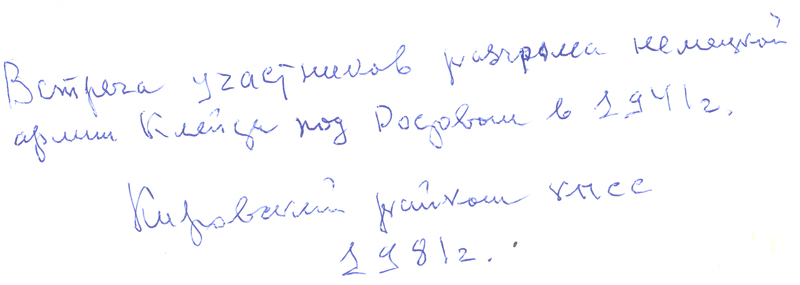 Встреча участников разгрома немецкой
армии Клейста под Ростовом в 1941г.
Кировский райком КПСС
1981г.